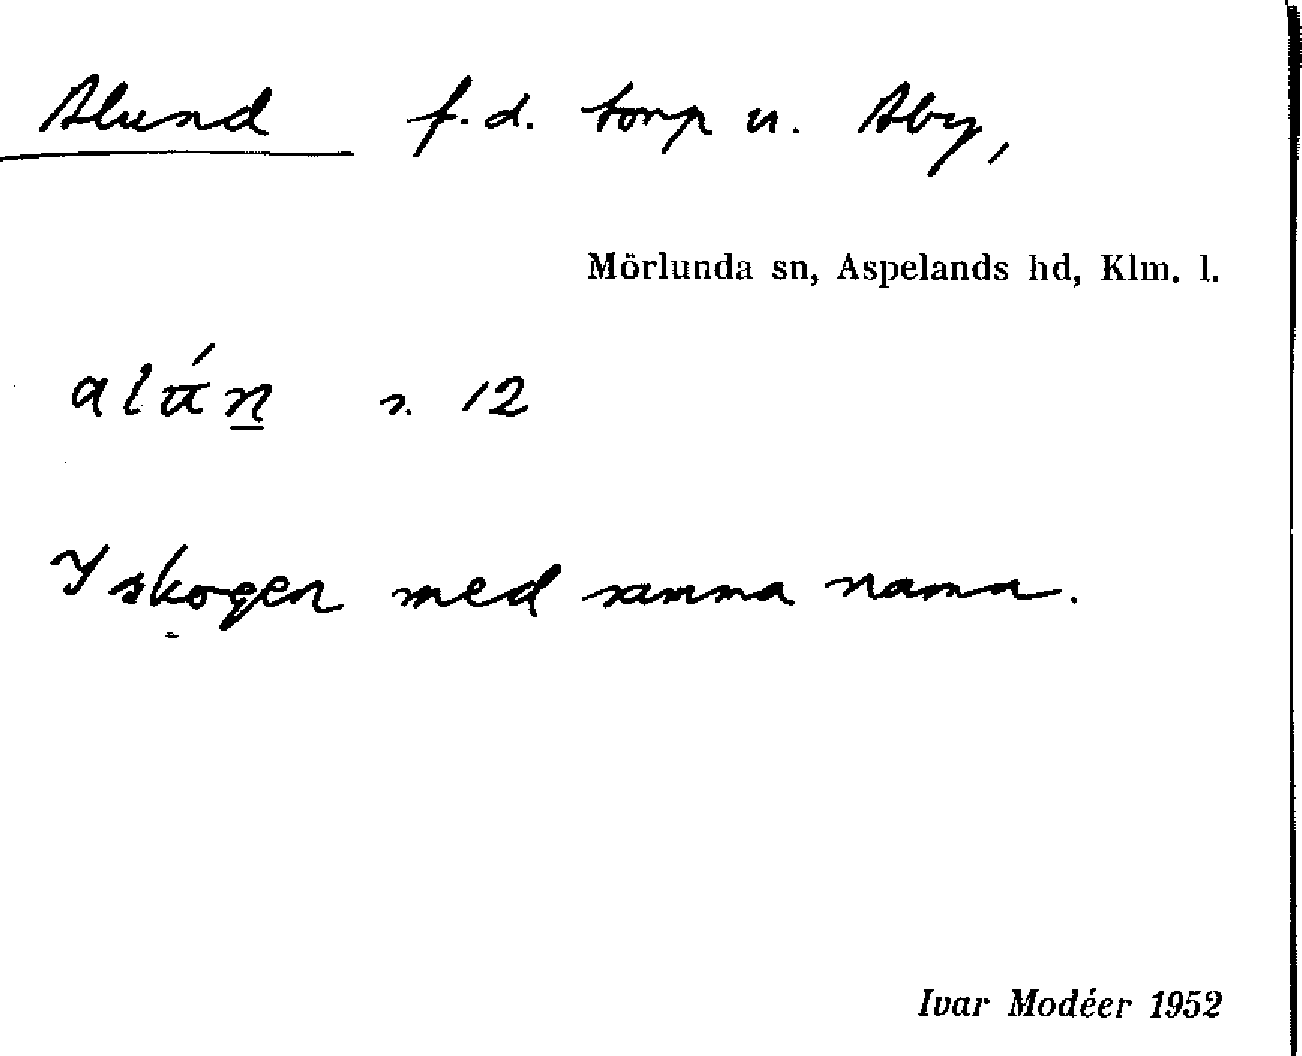 Alund f.d. torp u. Åby,
Mörlunda sn, Aspelands hd, Klm. l.
alún s. 12
I skogen med samma namn.
Ivar Modéer 1952